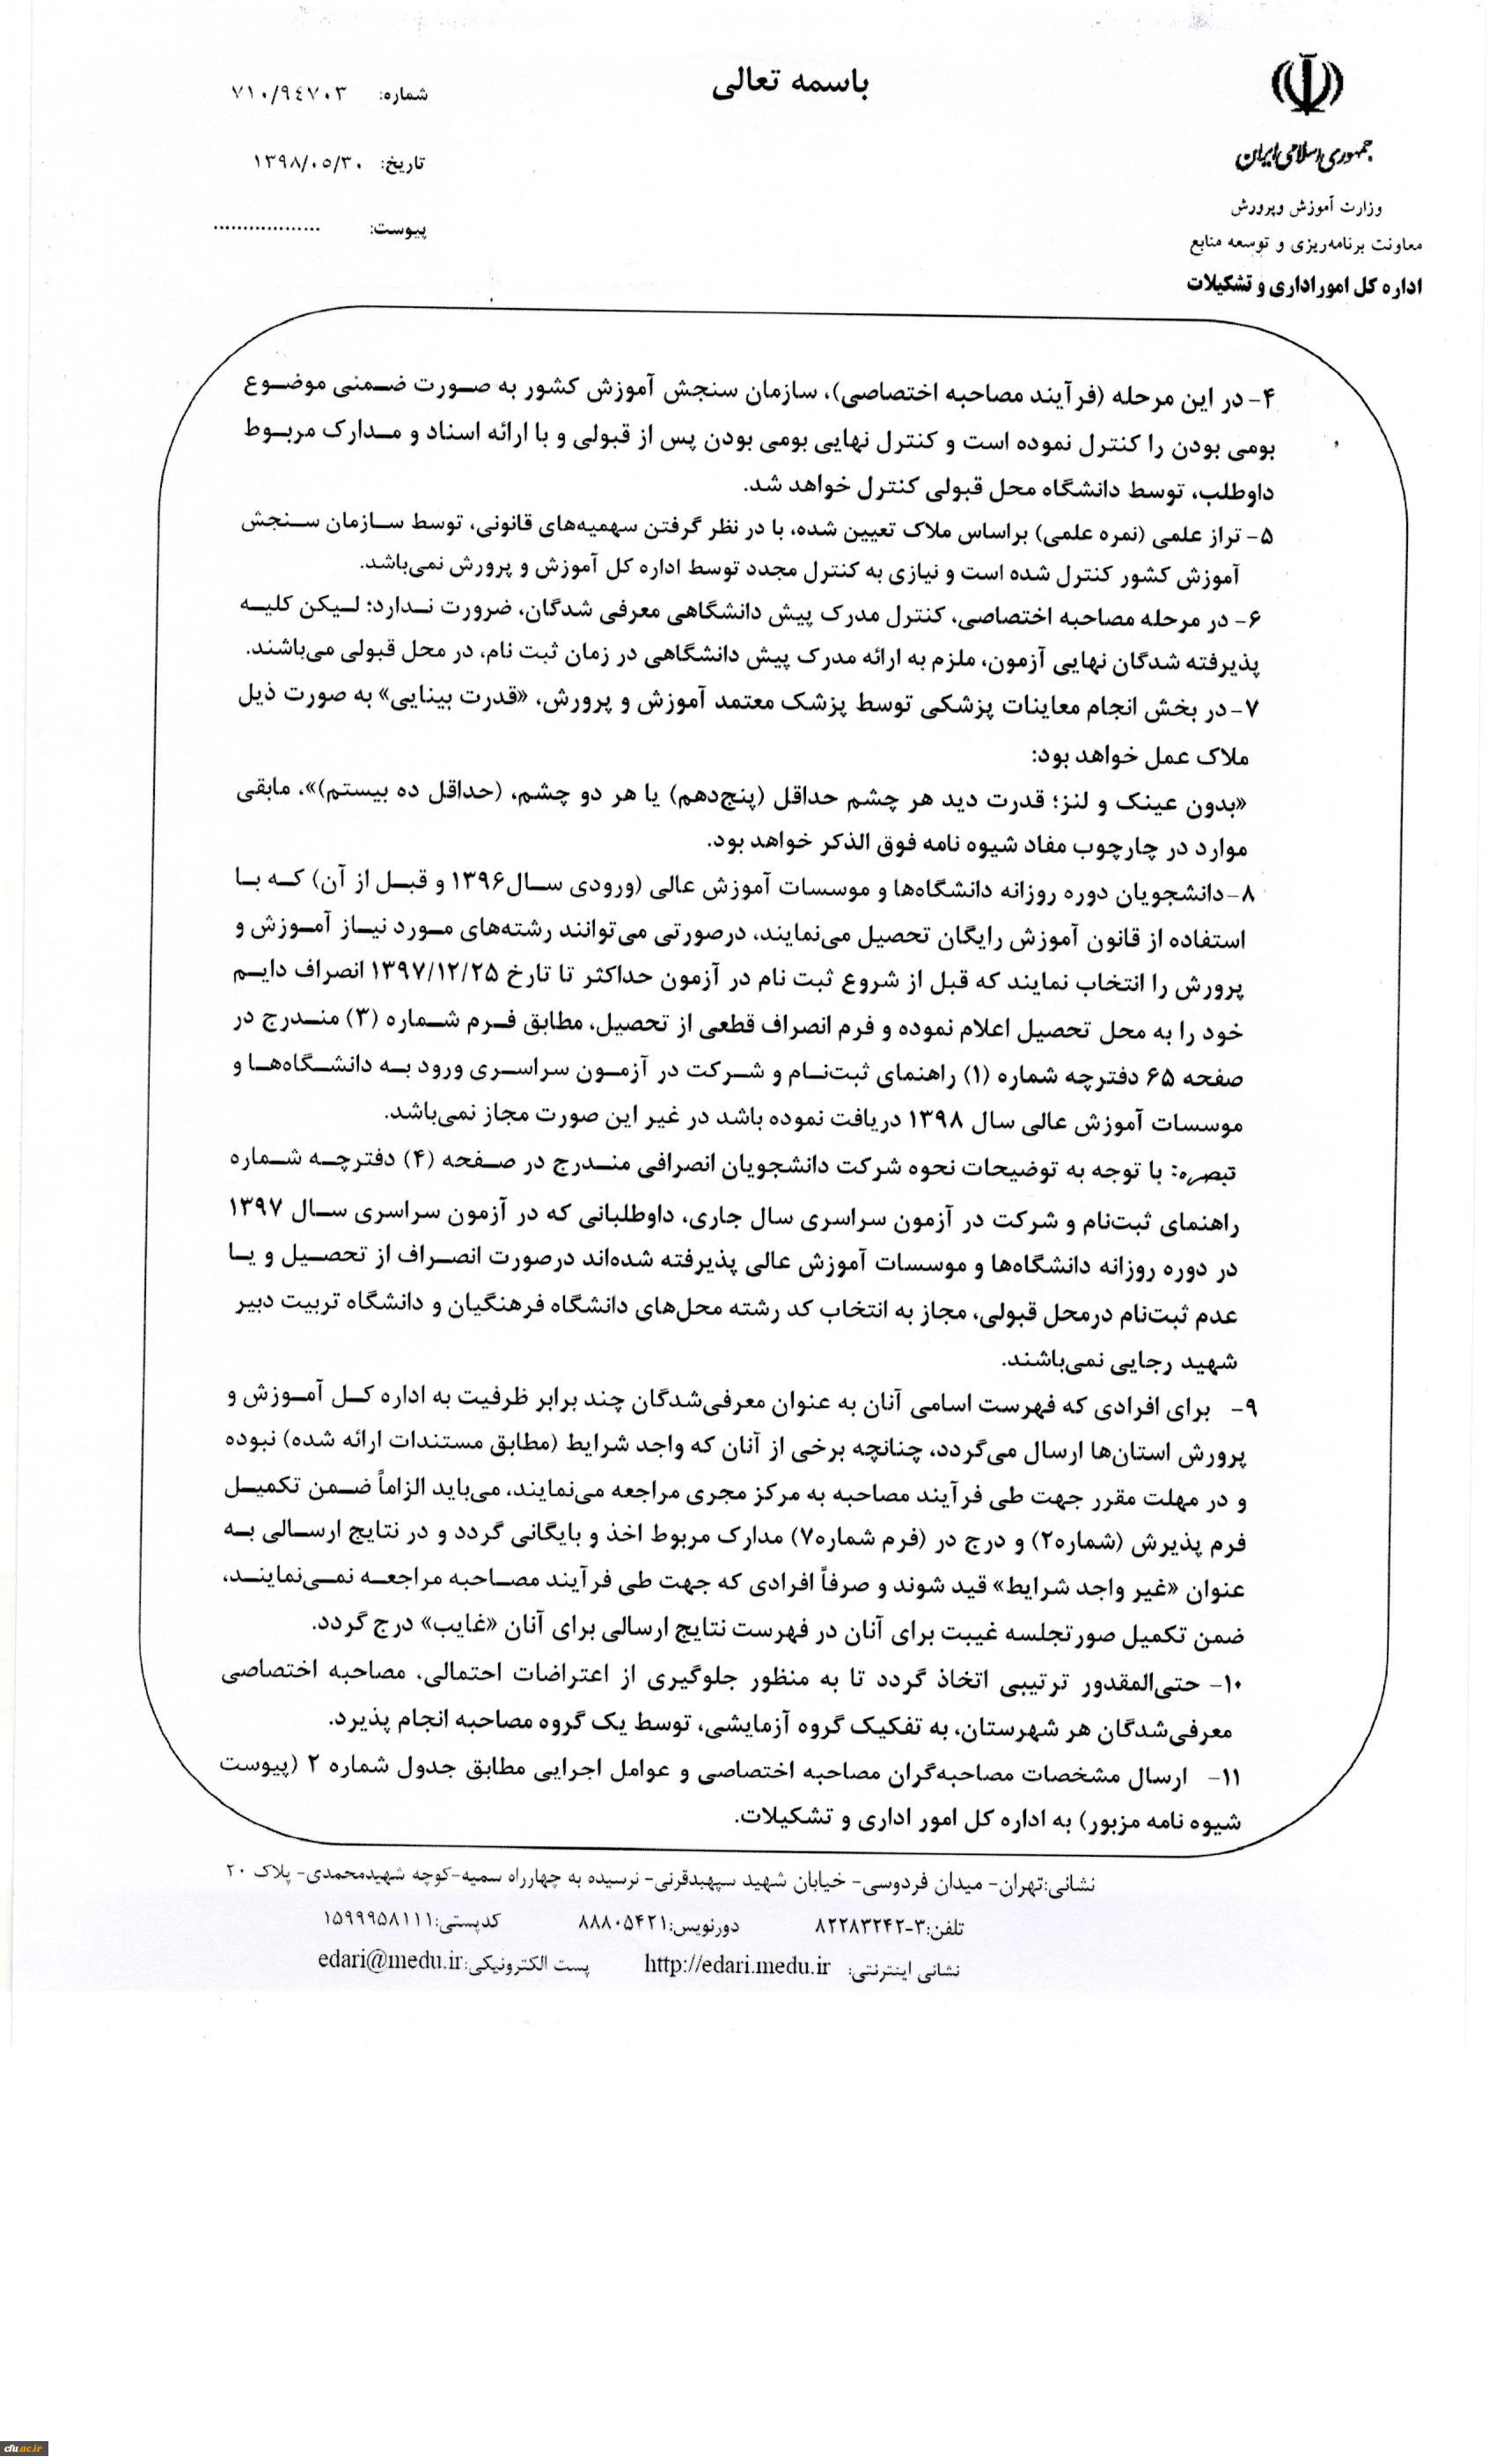 باسمه تعالی
جمهوری اسلامی ایران
وزارت آموزش وپرورش
معاونت برنامه‌ریزی و توسعه منابع
اداره کل امور اداری و تشکیلات
شماره: ۷۱۰/۹۴۷۰۳
تاریخ: ۱۳۹۸/۰۵/۳۰
پیوست: ..................
۴- در این مرحله (فرآیند مصاحبه اختصاصی)، سازمان سنجش آموزش کشور به صورت ضمنی موضوع
بومی بودن را کنترل نموده است و کنترل نهایی بومی بودن پس از قبولی و با ارائه اسناد و مدارک مربوط
داوطلب، توسط دانشگاه محل قبولی کنترل خواهد شد.
۵- تراز علمی (نمره علمی) براساس ملاک تعیین شده، با در نظر گرفتن سهمیه‌های قانونی، توسط سازمان سنجش
آموزش کشور کنترل شده است و نیازی به کنترل مجدد توسط اداره کل آموزش و پرورش نمی‌باشد.
۶- در مرحله مصاحبه اختصاصی، کنترل مدرک پیش دانشگاهی معرفی شدگان، ضرورت ندارد؛ لیکن کلیه
پذیرفته شدگان نهایی آزمون، ملزم به ارائه مدرک پیش دانشگاهی در زمان ثبت نام، در محل قبولی می‌باشند.
۷- در بخش انجام معاینات پزشکی توسط پزشک معتمد آموزش و پرورش، «قدرت بینایی» به صورت ذیل
ملاک عمل خواهد بود:
«بدون عینک و لنز؛ قدرت دید هر چشم حداقل (پنج‌دهم) یا هر دو چشم، (حداقل ده بیستم)»، مابقی
موارد در چارچوب مفاد شیوه نامه فوق الذکر خواهد بود.
۸- دانشجویان دوره روزانه دانشگاه‌ها و موسسات آموزش عالی (ورودی سال۱۳۹۶ و قبل از آن) که با
استفاده از قانون آموزش رایگان تحصیل می‌نمایند، درصورتی می‌توانند رشته‌های مورد نیاز آموزش و
پرورش را انتخاب نمایند که قبل از شروع ثبت نام در آزمون حداکثر تا تارخ ۱۳۹۷/۱۲/۲۵ انصراف دایم
خود را به محل تحصیل اعلام نموده و فرم انصراف قطعی از تحصیل، مطابق فرم شماره (۳) مندرج در
صفحه ۶۵ دفترچه شماره (۱) راهنمای ثبت‌نام و شرکت در آزمون سراسری ورود به دانشگاه‌ها و
موسسات آموزش عالی سال ۱۳۹۸ دریافت نموده باشد در غیر این صورت مجاز نمی‌باشد.
تبصره: با توجه به توضیحات نحوه شرکت دانشجویان انصرافی مندرج در صفحه (۴) دفترچه شماره
راهنمای ثبت‌نام و شرکت در آزمون سراسری سال جاری، داوطلبانی که در آزمون سراسری سال ۱۳۹۷
در دوره روزانه دانشگاه‌ها و موسسات آموزش عالی پذیرفته شده‌اند درصورت انصراف از تحصیل و یا
عدم ثبت‌نام درمحل قبولی، مجاز به انتخاب کد رشته محل‌های دانشگاه فرهنگیان و دانشگاه تربیت دبیر
شهید رجایی نمی‌باشند.
۹- برای افرادی که فهرست اسامی آنان به عنوان معرفی‌شدگان چند برابر ظرفیت به اداره کل آموزش و
پرورش استان‌ها ارسال می‌گردد، چنانچه برخی از آنان که واجد شرایط (مطابق مستندات ارائه شده) نبوده
و در مهلت مقرر جهت طی فرآیند مصاحبه به مرکز مجری مراجعه می‌نمایند، می‌باید الزاماً ضمن تکمیل
فرم پذیرش (شماره۲) و درج در (فرم شماره۷) مدارک مربوط اخذ و بایگانی گردد و در نتایج ارسالی به
عنوان «غیر واجد شرایط» قید شوند و صرفاً افرادی که جهت طی فرآیند مصاحبه مراجعه نمی‌نمایند،
ضمن تکمیل صورتجلسه غیبت برای آنان در فهرست نتایج ارسالی برای آنان «غایب» درج گردد.
۱۰- حتی‌المقدور ترتیبی اتخاذ گردد تا به منظور جلوگیری از اعتراضات احتمالی، مصاحبه اختصاصی
معرفی‌شدگان هر شهرستان، به تفکیک گروه آزمایشی، توسط یک گروه مصاحبه انجام پذیرد.
۱۱- ارسال مشخصات مصاحبه‌گران مصاحبه اختصاصی و عوامل اجرایی مطابق جدول شماره ۲ (پیوست
شیوه نامه مزبور) به اداره کل امور اداری و تشکیلات.
نشانی:تهران- میدان فردوسی- خیابان شهید سپهبدقرنی- نرسیده به چهارراه سمیه-کوچه شهیدمحمدی- پلاک ۲۰
تلفن:۳-۸۲۲۸۳۲۴۲ دورنویس:۸۸۸۰۵۴۲۱ کدپستی:۱۵۹۹۹۵۸۱۱۱
نشانی اینترنتی: http://edari.medu.ir پست الکترونیکی:edari@medu.ir
cfu.ac.ir